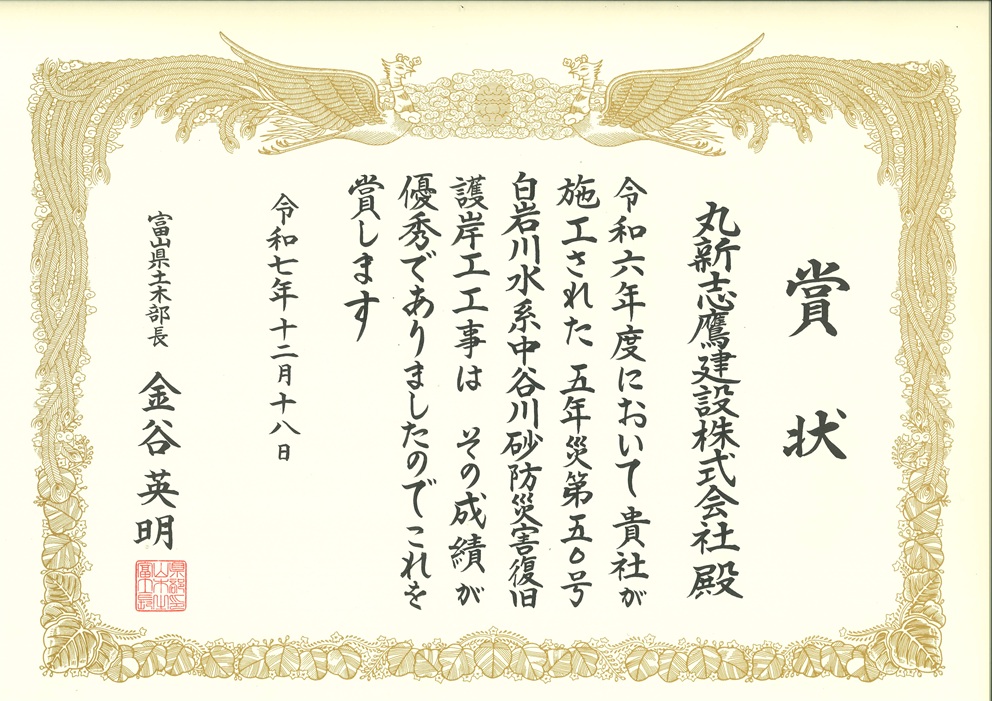 賞状
丸新志鷹建設株式会社殿
令和六年度において貴社が
施工された 五年災第五〇号
白岩川水系中谷川砂防災害復旧
護岸工工事は その成績が
優秀でありましたのでこれを
賞します
令和七年十二月十八日
富山県土木部長 金谷英明